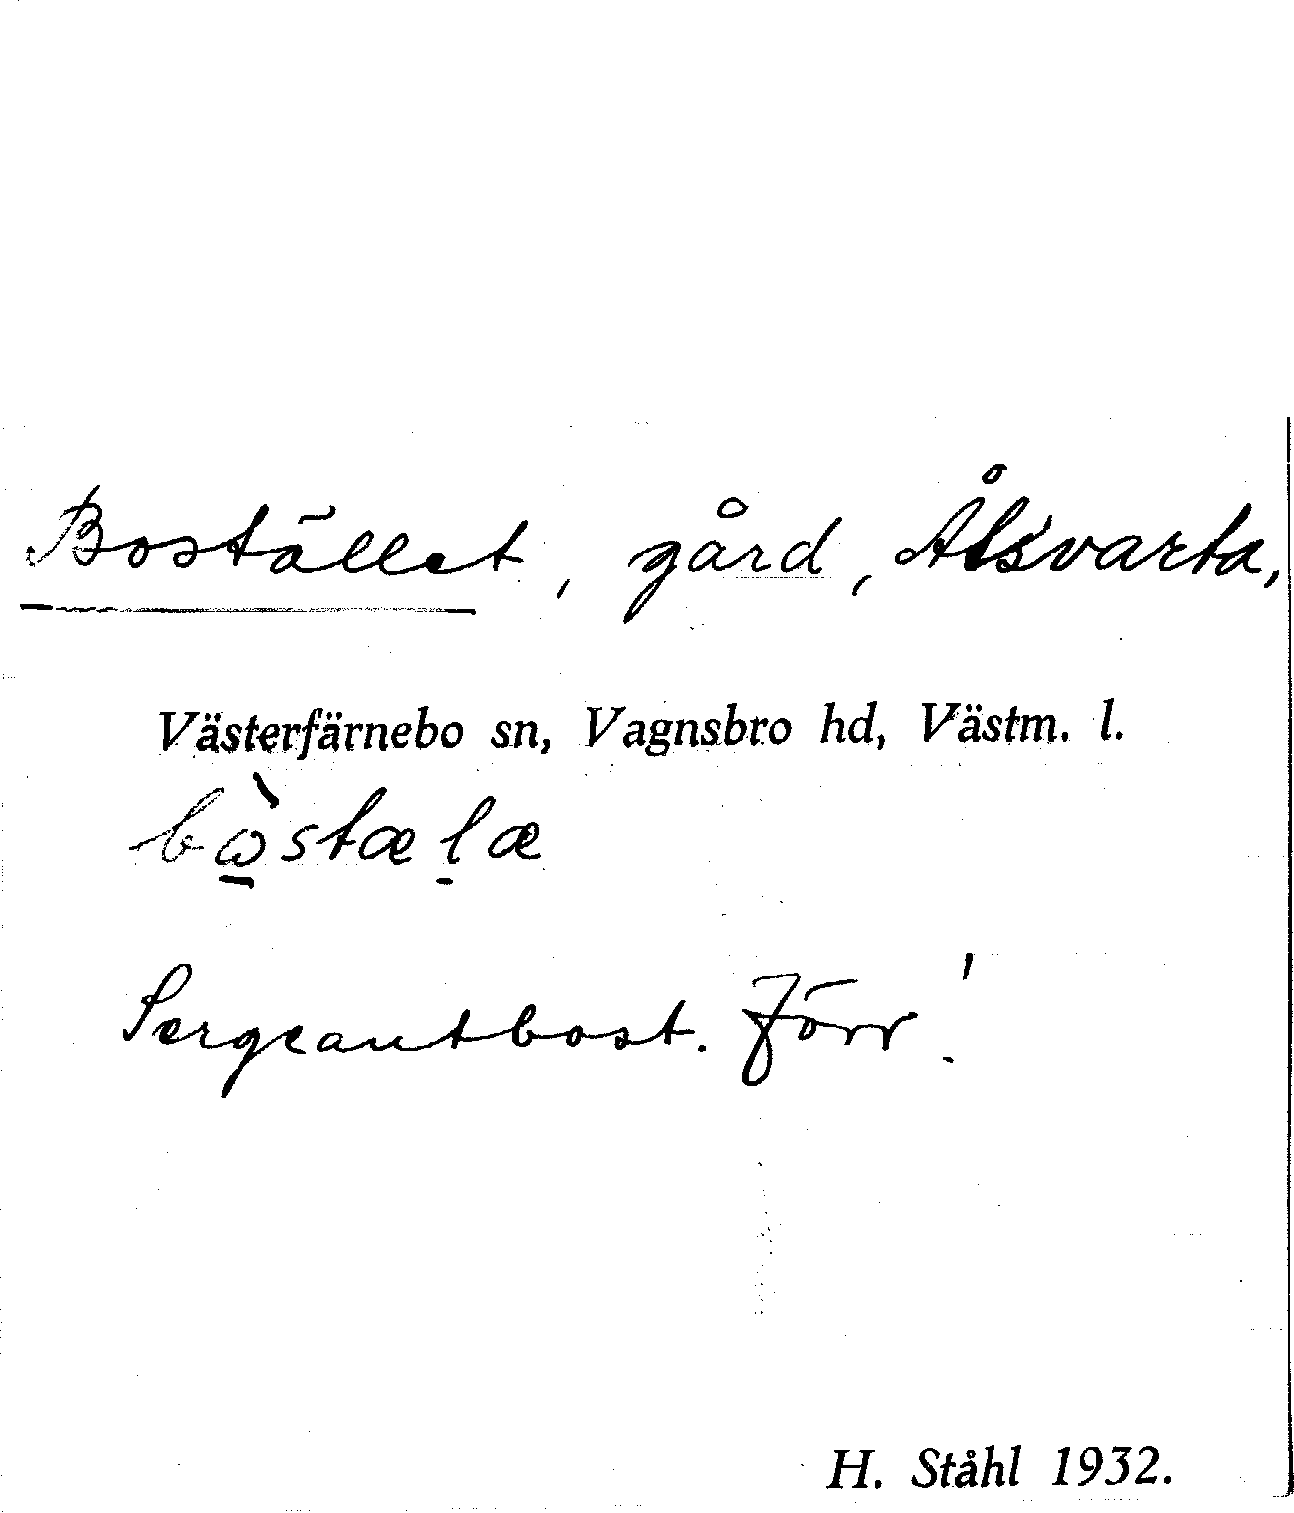 Bostället, gård, Ålsvarta,
Västerfärnebo sn, Vagnsbro hd, Västm. l.
bὼ̠stæl̠æ
Sergeantbost. Förr!
H. Ståhl 1932.